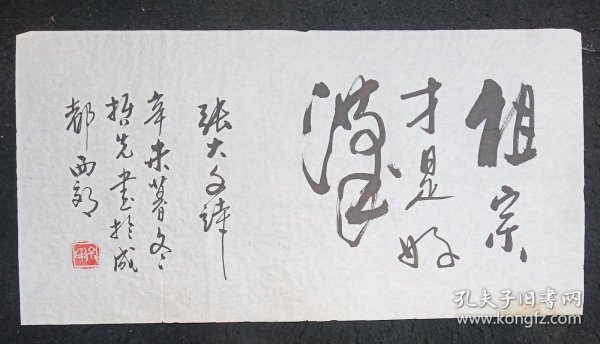 宗
才是好
张大文
辛未暮冬
哲先書於成
都西郊
孔夫子旧書网
www.kongfz.com